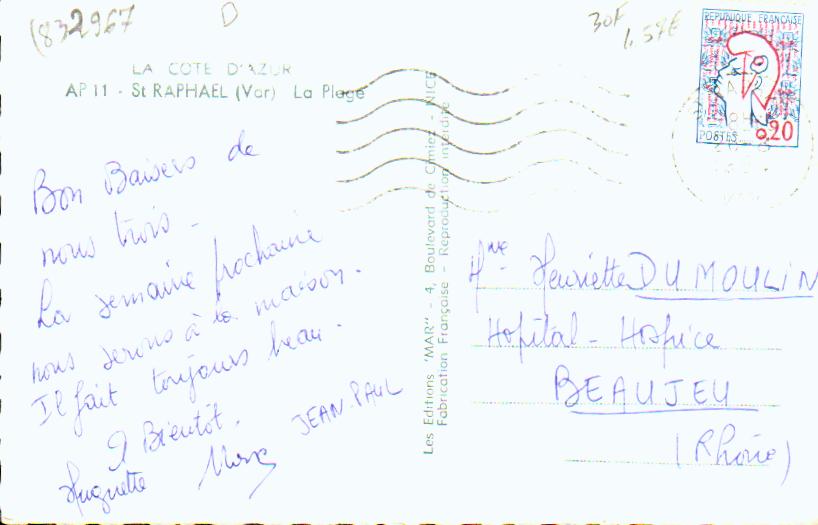 (832967
D
30F
1,57€
REPUBLIQUE FRANÇAISE
POSTES
0,20
LA COTE D'AZUR
AP 11 - St RAPHAEL (Var) La Plage
Bon Baisers de
nous trois -
La semaine prochaine
nous serons à la maison.
Il fait toujours beau.
A Bientôt.
Huguette Marc JEAN-PAUL
Les Editions "MAR" - 4, Boulevard de Cimiez - NICE
Fabrication Française - Reproduction interdite
Mme Henriette DUMOULIN
Hopital - Hospice
BEAUJEU
(Rhône)